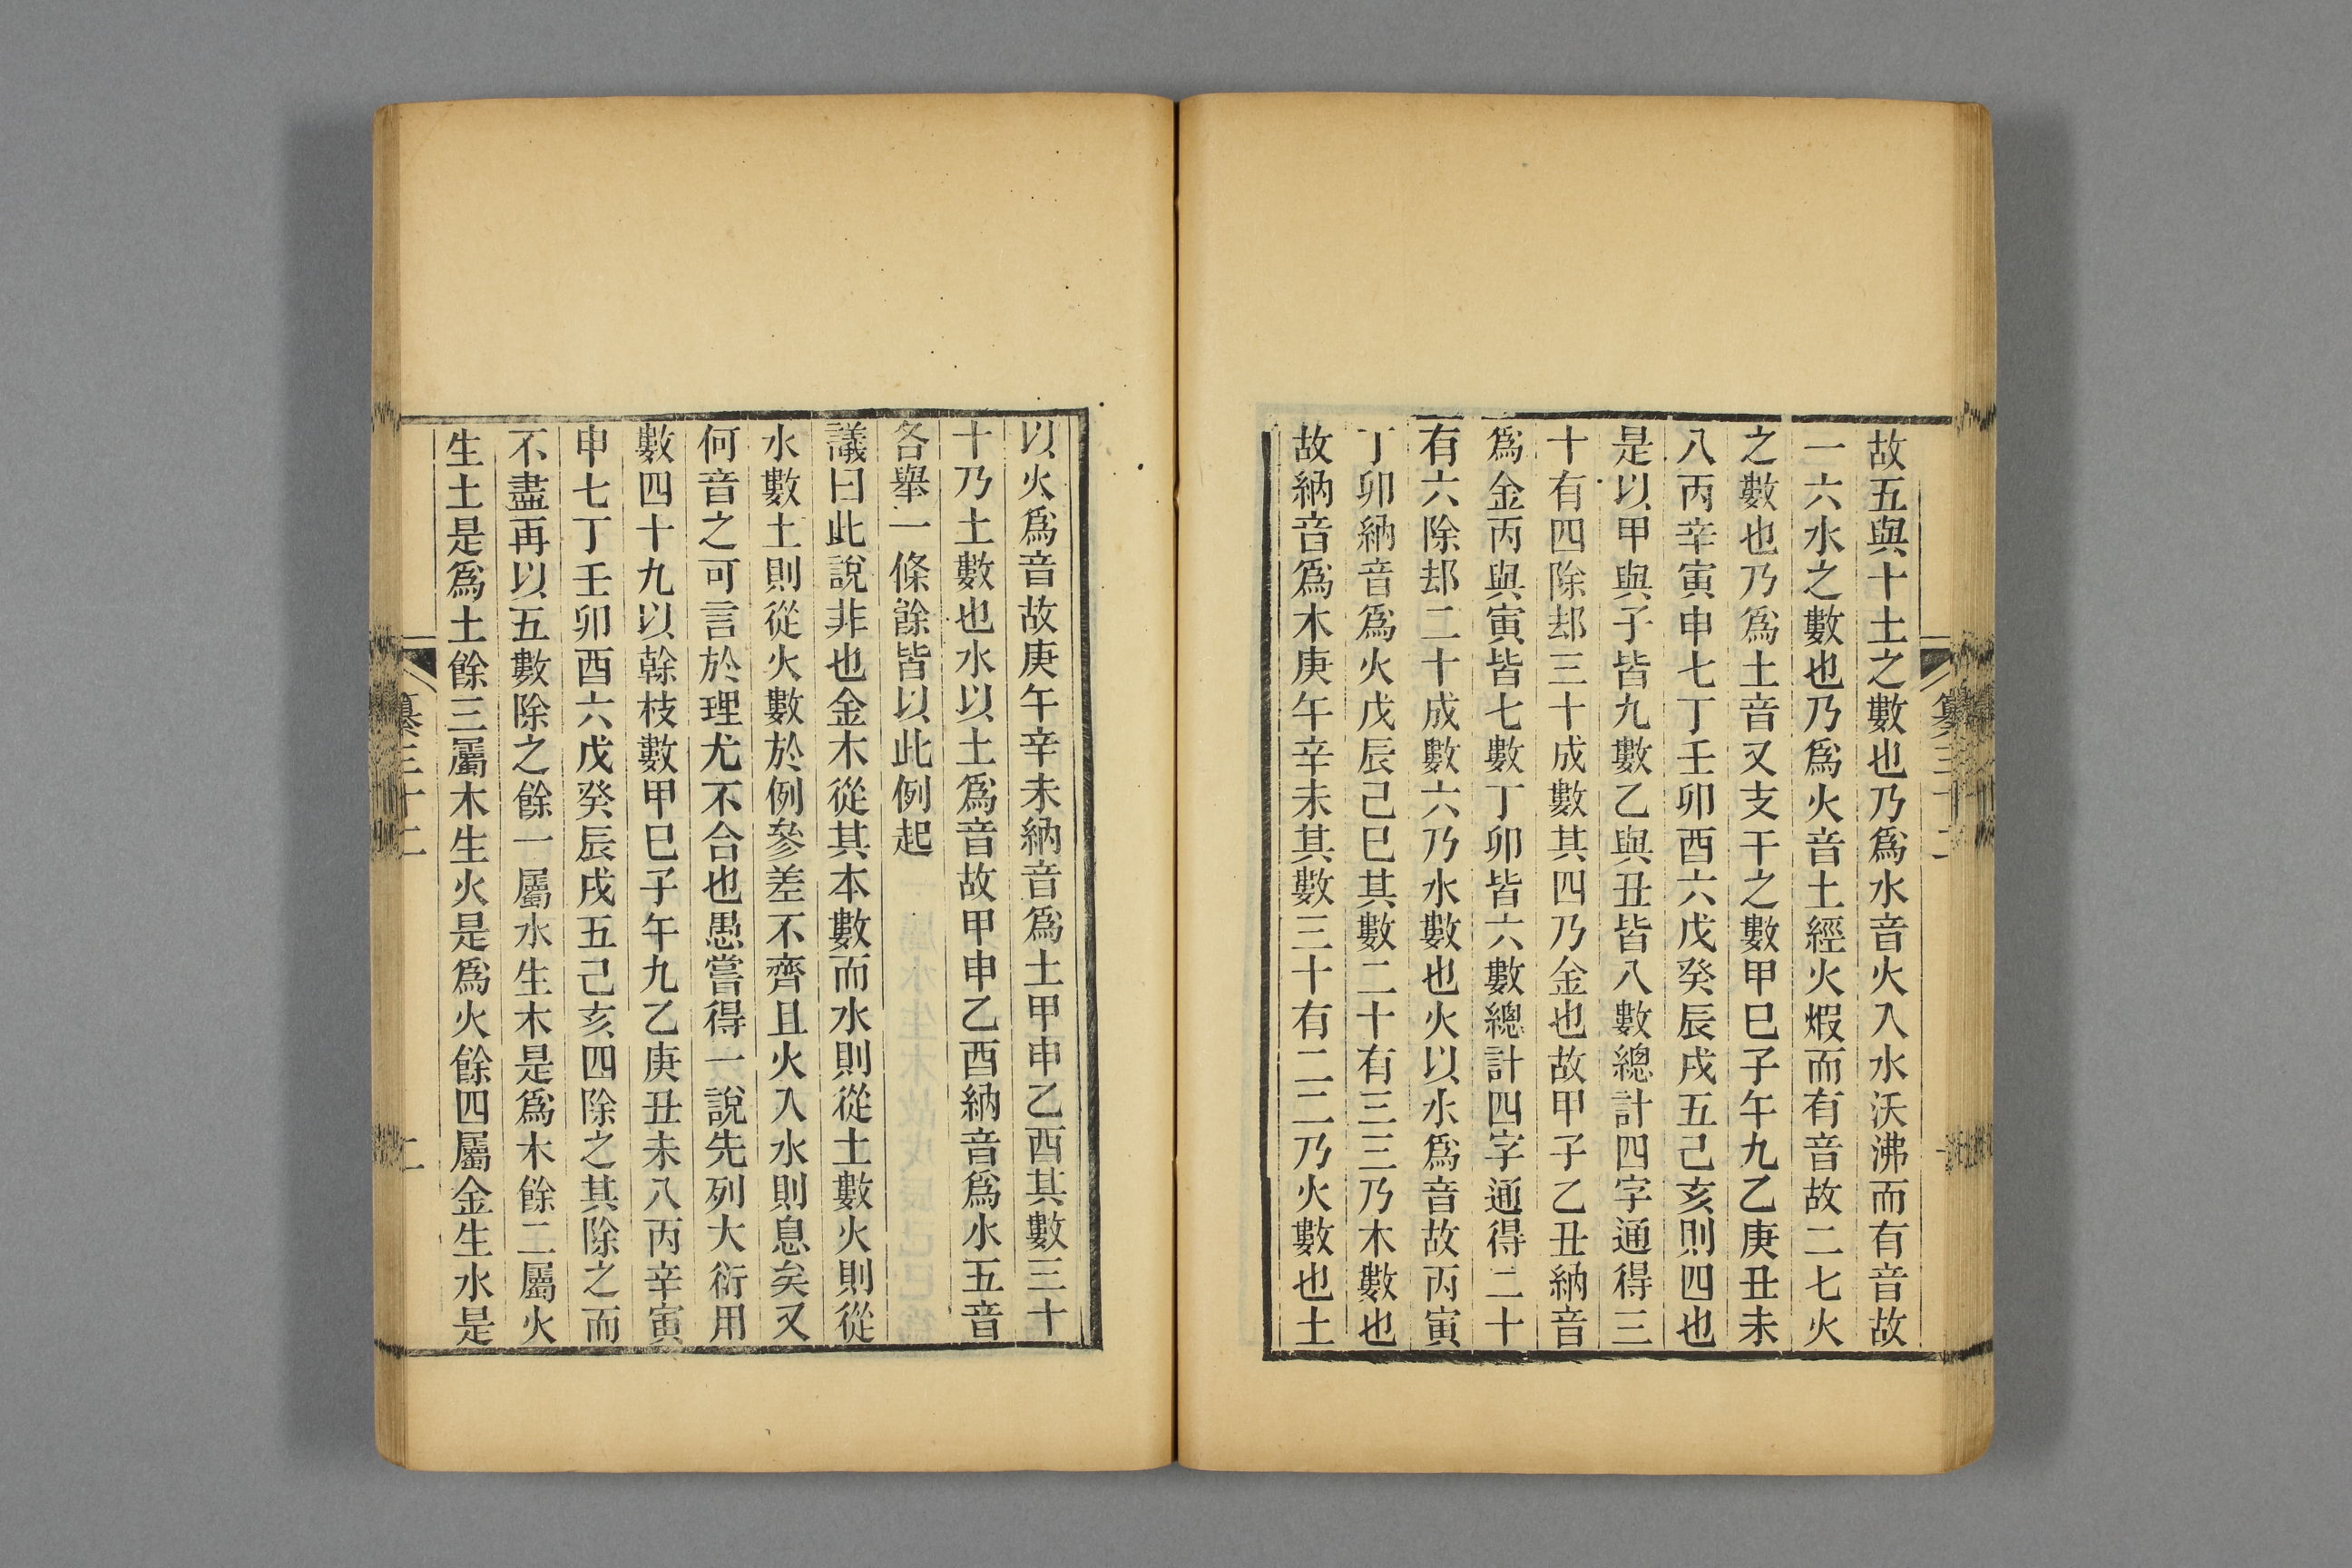 故五與十土之數也乃爲水音火入水沃沸而有音故
一六水之數也乃爲火音土經火煆而有音故二七火
之數也乃爲土音又支干之數甲巳子午九乙庚丑未
八丙辛寅申七丁壬卯酉六戊癸辰戌五己亥則四也
是以甲與子皆九數乙與丑皆八數總計四字通得三
十有四除却三十成數其四乃金也故甲子乙丑納音
爲金丙與寅皆七數丁卯皆六數總計四字通得二十
有六除却二十成數六乃水數也火以水爲音故丙寅
丁卯納音爲火戊辰己巳其數二十有三三乃木數也
故納音爲木庚午辛未其數三十有二二乃火數也土
纂三十二
以火爲音故庚午辛未納音爲土甲申乙酉其數三十
十乃土數也水以土爲音故甲申乙酉納音爲水五音
各舉一條餘皆以此例起
議曰此說非也金木從其本數而水則從土數火則從
水數土則從火數於例參差不齊且火入水則息矣又
何音之可言於理尤不合也愚嘗得一說先列大衍用
數四十九以榦枝數甲巳子午九乙庚丑未八丙辛寅
申七丁壬卯酉六戊癸辰戌五己亥四除之其除之而
不盡再以五數除之餘一屬水生木是爲木餘二屬火
生土是爲土餘三屬木生火是爲火餘四屬金生水是
纂三十二